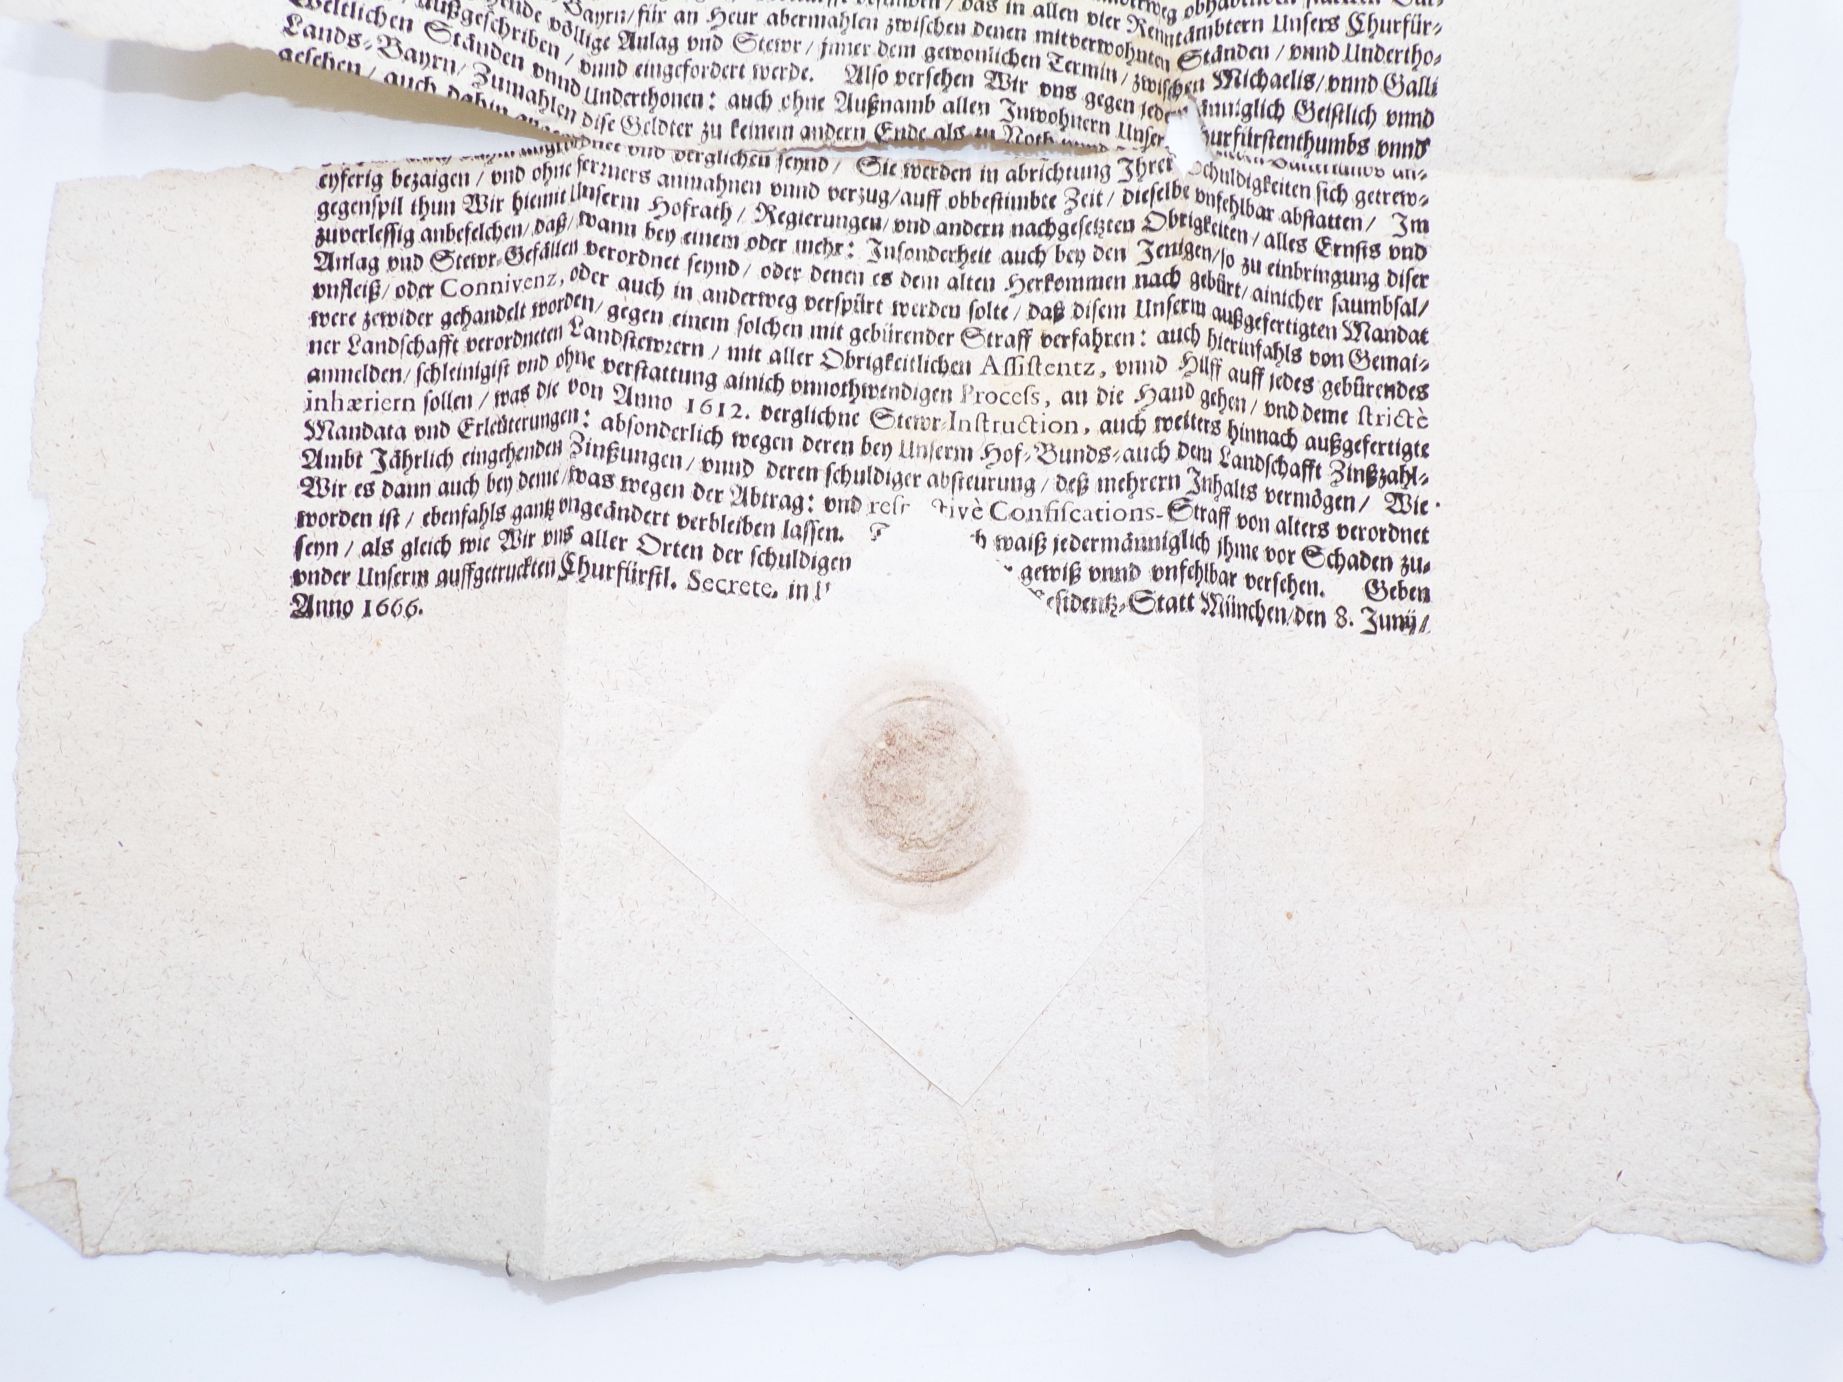 das in allen vier Renntämbtern Unsers Churfür-
Bayrn/für an Heur abermahlen zwischen denen mitverwohnten Ständen / vnnd Undertho-
Außgeschriben / vnnd eingefordert werde. Also versehen Wir vns gegen
völlige Anlag vnd Stewr / jnner dem gewonlichen Termin / zwischen Michaelis/ vnnd Galli
Weltlichen Ständen vnnd Underthonen: auch ohne Außnamb allen Inwohnern Unser
männiglich Geistlich vnnd
Lands-Bayrn/ Zumahlen dise Geldter zu keinem andern Ende als zu
Churfürstenthumbs vnnd
gesehen / auch dahin angeordnet vnd verglichen seynd / Sie werden in abrichtung Ihrer Schuldigkeiten sich getrew-
eyferig bezaigen / vnd ohne ferrners anmahnen vnnd verzug/auff obbestimbte Zeit / dieselbe vnfehlbar abstatten / Im
gegenspil thun Wir hiemit Unserm Hofrath / Regierungen/ vnd andern nachgesetzten Obrigkeiten / alles Ernsts vnd
zuverlessig anbefelchen/ daß/ wann bey einem oder mehr: Insonderheit auch bey den Jenigen/so zu einbringung diser
Anlag vnd Stewr-Gefällen verordnet seynd / oder denen es dem alten Herkommen nach gebürt/ ainicher saumbsal/
vnfleiß/ oder Connivenz, oder auch in anderweg verspürt werden solte / daß disem Unserm außgefertigten Mandat
were zewider gehandelt worden/ gegen einem solchen mit gebürender Straff verfahren: auch hierinfahls von Gemai-
ner Landschafft verordneten Landstewrern / mit aller Obrigkeitlichen Assistentz, vnnd Hilff auff jedes gebürendes
anmelden/ schleinigist vnd ohne verstattung ainich vnnothwendigen Process, an die Hand gehen / vnd deme strictè
inhæriern sollen / was die von Anno 1612. verglichne Stewr-Instruction, auch weiters hinnach außgefertigte
Mandata vnd Erleüterungen: absonderlich wegen deren bey Unserm Hof-Bunds-auch dem Landschafft Zinßzahl-
Ambt Jährlich eingehenden Zinßungen / vnnd deren schuldiger absteurung / deß mehrern Inhalts vermögen / Wie
Wir es dann auch bey deme/was wegen der Abtrag: vnd respectivè Confiscations-Straff von alters verordnet
worden ist / ebenfahls gantz vngeändert verbleiben lassen. waiß jedermänniglich jhme vor Schaden zu-
seyn / als gleich wie Wir vns aller Orten der schuldigen gewiß vnnd vnfehlbar versehen. Geben
vnder Unserm auffgetruckten Churfürstl. Secrete. in Residentz-Statt München/den 8. Junij/
Anno 1666.